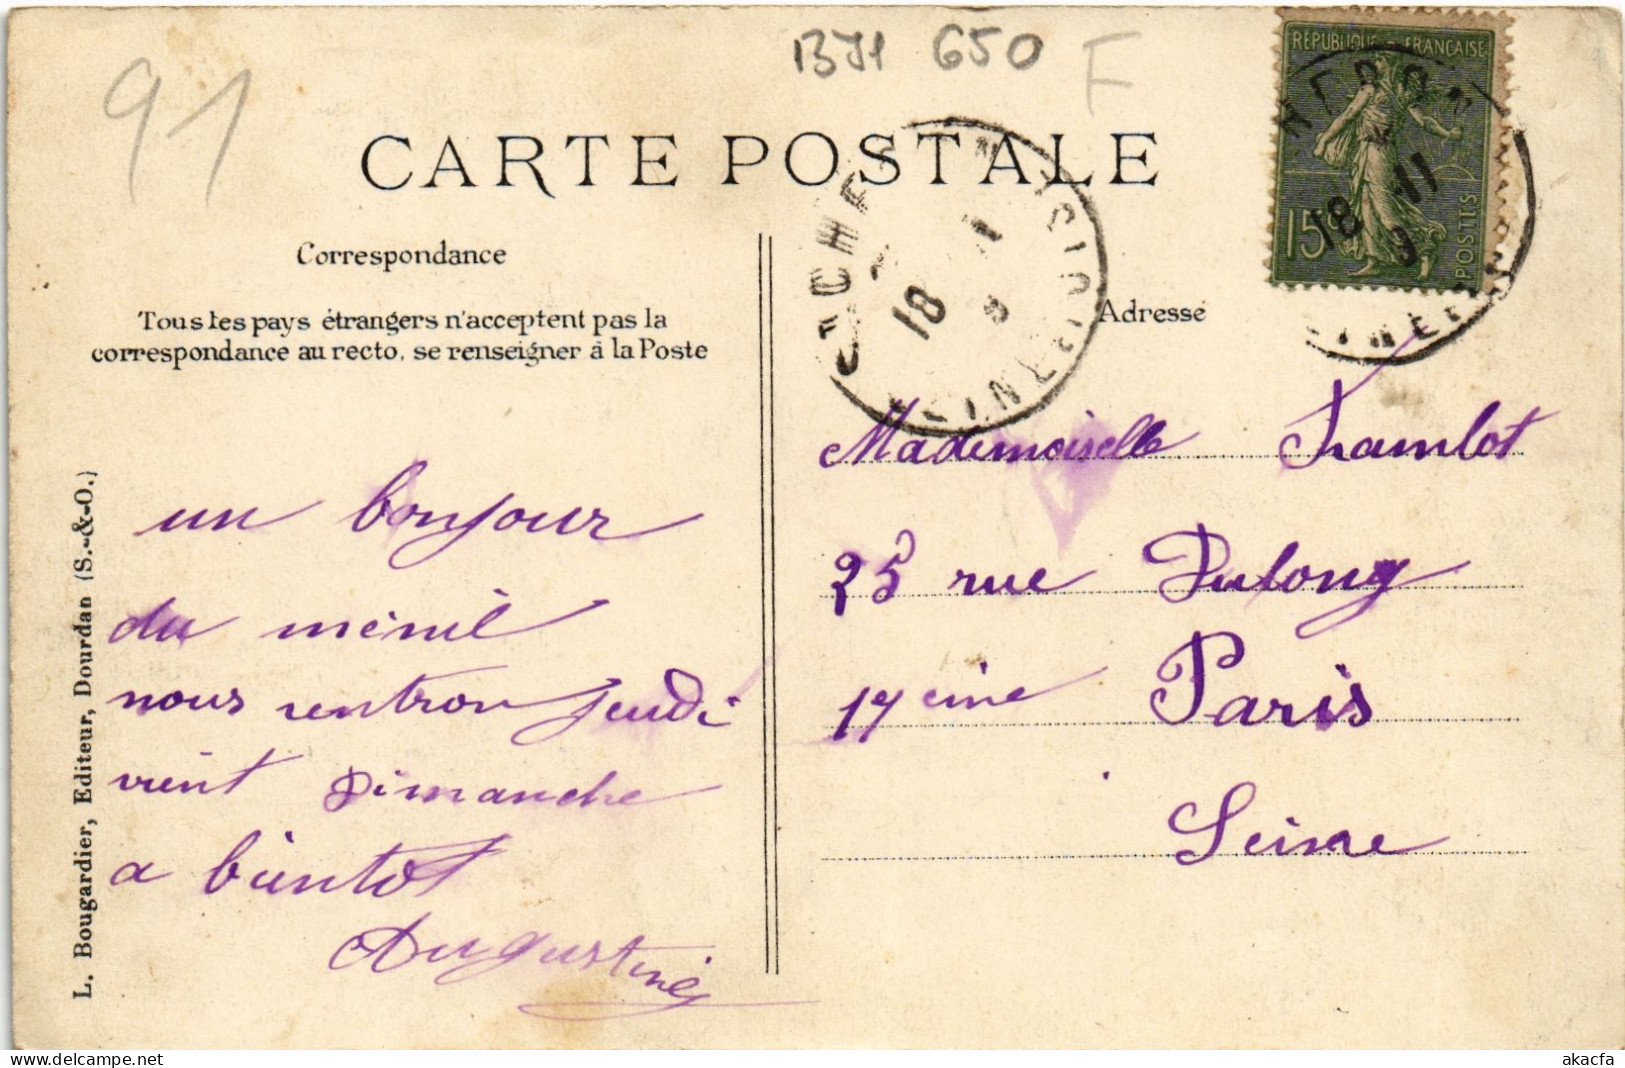 91
1371 650 F
CARTE POSTALE
REPUBLIQUE FRANÇAISE
15 POSTES
18 11
9
18 11
9
SEINE
Correspondance
Tous les pays étrangers n'acceptent pas la
correspondance au recto, se renseigner à la Poste
Adresse
L. Bougardier, Editeur, Dourdan (S.-&-O.)
un bonjour
du ménil
nous rentron jeudi
vient Dimanche
a bientot
Augustine
Mademoiselle
25 rue Dulong
17 eme Paris
Seine
www.delcampe.net
akacfa